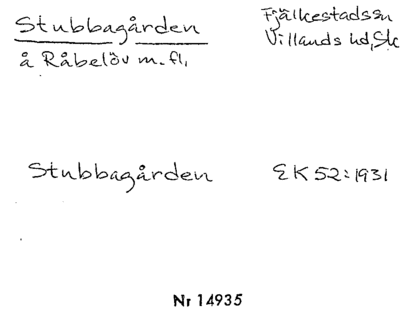 Stubbagården
Fjälkestads sn
å Råbelöv m. fl.
Villands hd, Sk
Stubbagården
EK 52:1931
Nr 14935